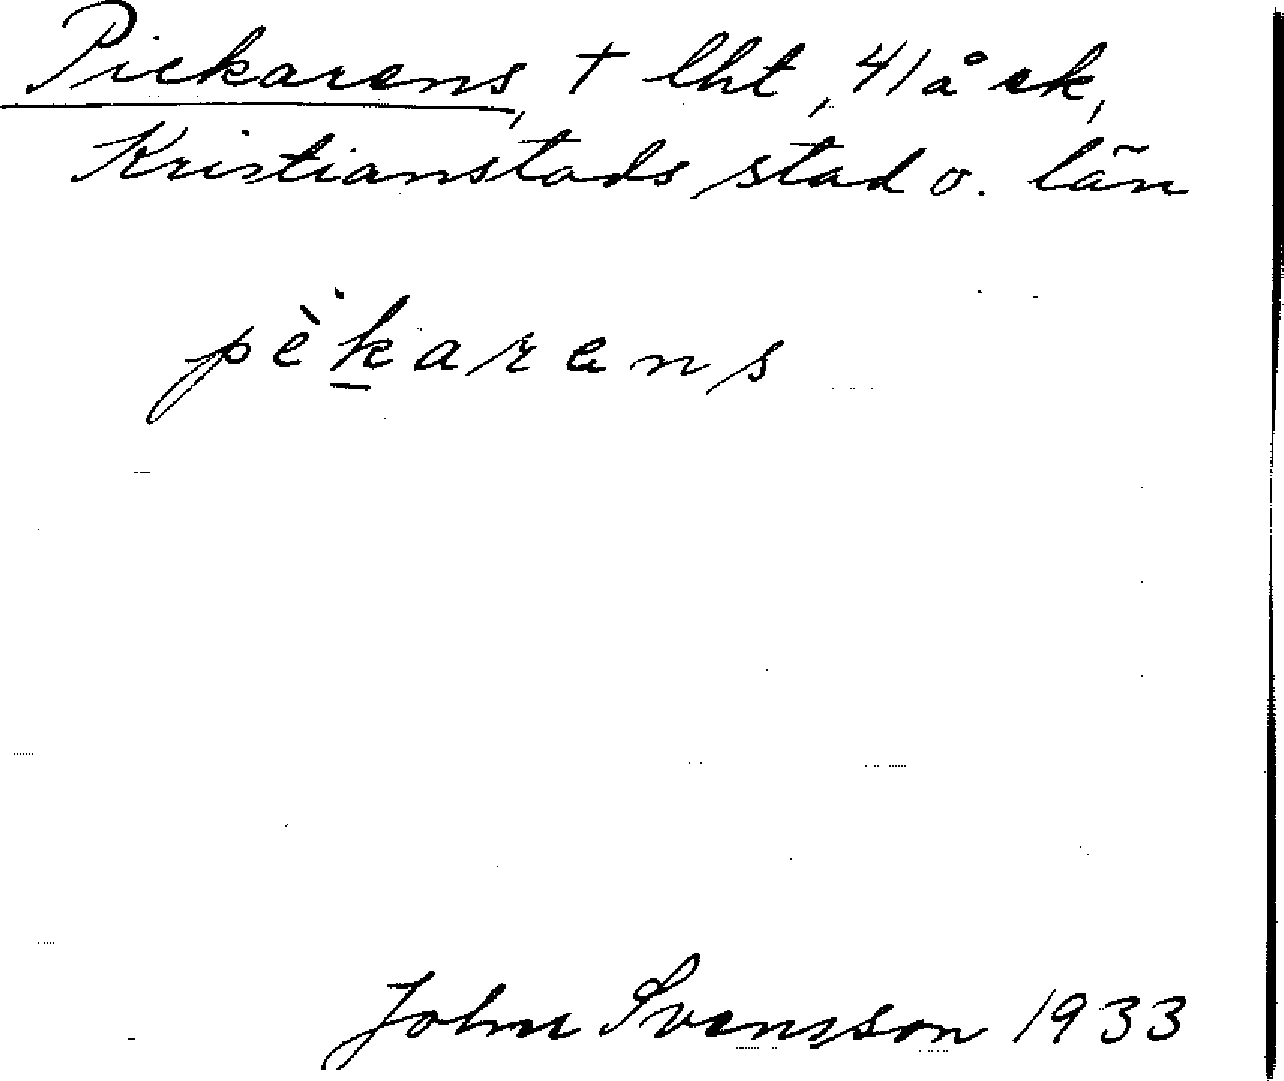 Pickarens, † lht, 41 å ek,
Kristianstads stad o. län
pèkarens
John Svensson 1933